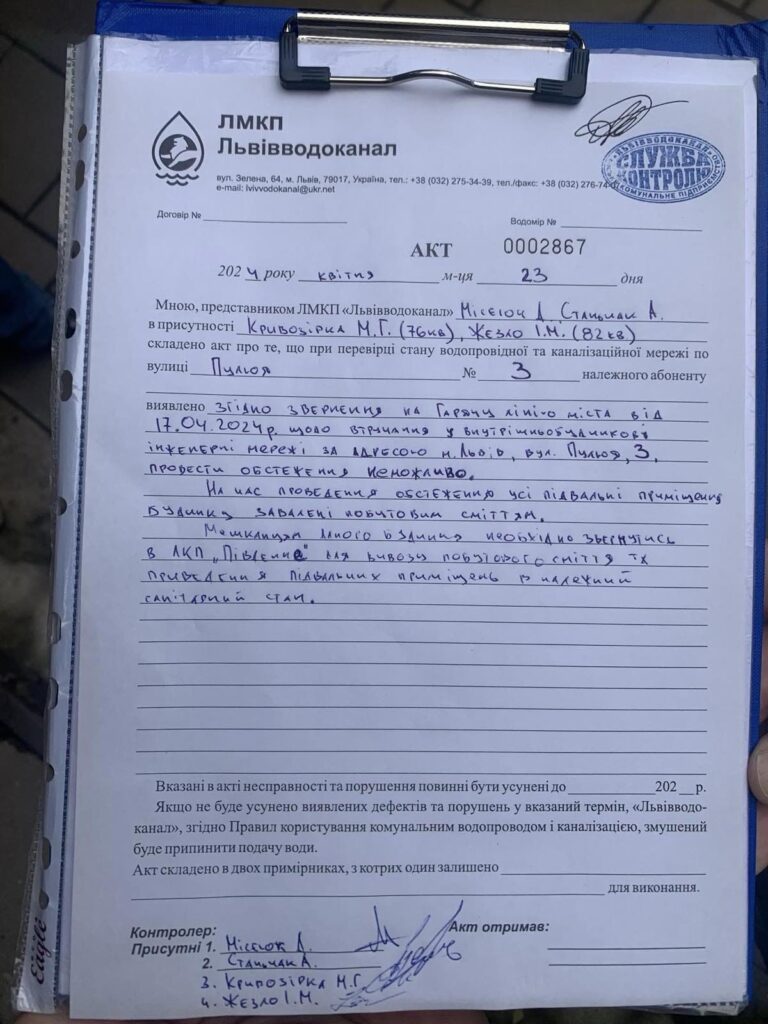 ЛМКП
Львівводоканал
вул. Зелена, 64, м. Львів, 79017, Україна, тел.: +38 (032) 275-34-39, тел./факс: +38 (032) 276-74-
e-mail: lvivvodokanal@ukr.net
ЛЬВІВВОДОКАНАЛ
СЛУЖБА
КОНТРОЛЮ
Договір №
Водомір №
АКТ 0002867
2024 року квітня м-ця 23 дня
Мною, представником ЛМКП «Львівводоканал» Місеюк Д Станьчак А.
в присутності Кривозірка М.Г. (76кв), Жезло І.М. (82кв)
складено акт про те, що при перевірці стану водопровідної та каналізаційної мережі по
вулиці Пулюя № 3 належного абоненту
виявлено згідно звернення на Гарячу лінію міста від
17.04.2024р. щодо втручання у внутрішньобудинкові
інженерні мережі за адресою м. Львів, вул. Пулюя, 3,
провести обстеження неможливо.
На час проведення обстеження усі підвальні приміщення
будинку завалені побутовим сміттям.
Мешканцям даного будинку необхідно звернутись
в ЛКП „Південне" для вивозу побутового сміття та
приведення підвальних приміщень в належний
санітарний стан.
Вказані в акті несправності та порушення повинні бути усунені до 202 р.
Якщо не буде усунено виявлених дефектів та порушень у вказаний термін, «Львівводо-
канал», згідно Правил користування комунальним водопроводом і каналізацією, змушений
буде припинити подачу води.
Акт складено в двох примірниках, з котрих один залишено
для виконання.
Контролер: Акт отримав:
Присутні 1. Місеюк Д.
2. Станьчак А.
3. Кривозірка М.Г.
4. Жезло І.М.
Eagle